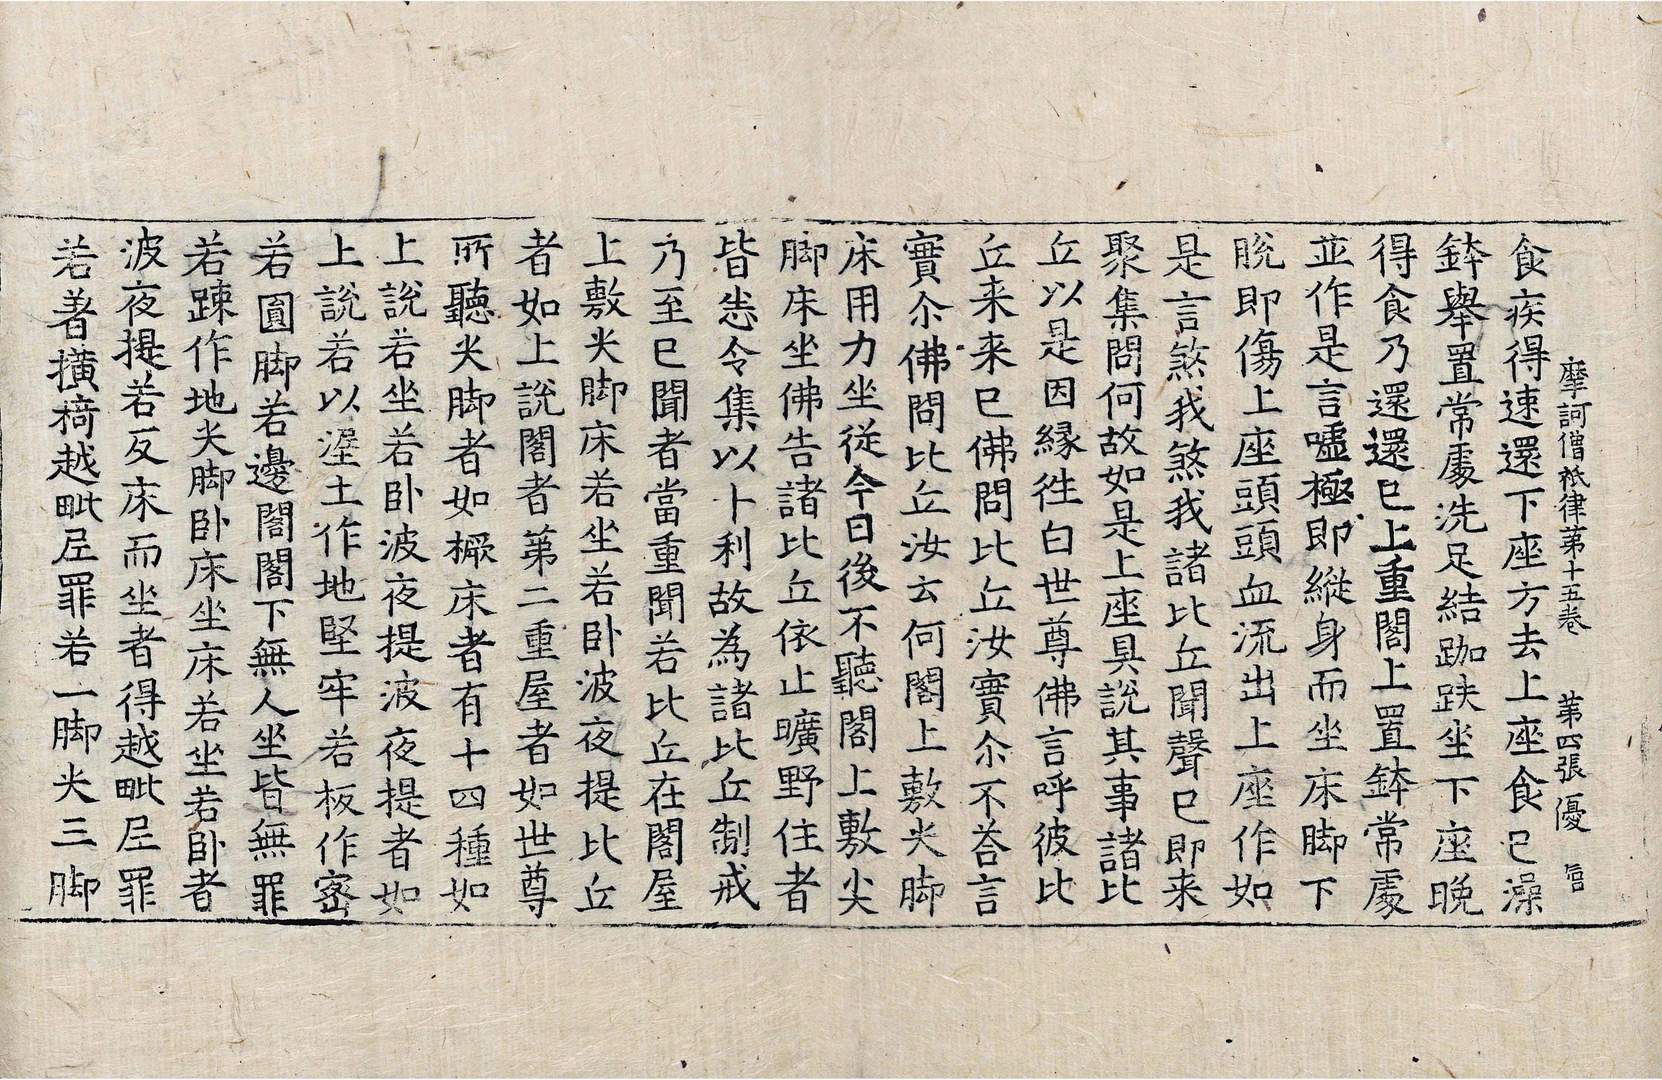 摩訶僧祇律苐十五卷 苐四張 優
食疾得速還下座方去上座食已澡
鉢舉置常處洗足結跏趺坐下座晚
得食乃還還已上重閣上置鉢常處
並作是言噓極即縱身而坐床脚下
脫即傷上座頭頭血流出上座作如
是言煞我煞我諸比丘聞聲已即来
聚集問何故如是上座具說其事諸比
丘以是因縁徃白世尊佛言呼彼比
丘来来已佛問比丘汝實尒不荅言
實尒佛問比丘汝云何閣上敷尖脚
床用力坐従今日後不聽閣上敷尖
脚床坐佛告諸比丘依止曠野住者
皆悉令集以十利故為諸比丘制戒
乃至已聞者當重聞若比丘在閣屋
上敷尖脚床若坐若卧波夜提比丘
者如上說閣者第二重屋者如世尊
所聽尖脚者如橛床者有十四種如
上說若坐若卧波夜提波夜提者如
上說若以埿土作地堅牢若板作宻
若圓脚若邊閣閣下無人坐皆無罪
若踈作地尖脚卧床坐床若坐若卧者
波夜提若反床而坐者得越毗尼罪
若著撗椅越毗尼罪若一脚尖三脚